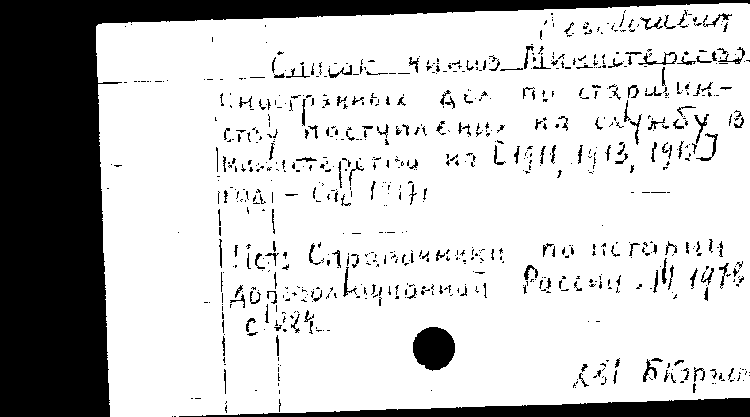 Список чинов Министерства
иностранных дел по старшин-
ству поступления на службу в
Министерство на [1911, 1913, 1915]
год. – Спб 1917.
Ист: Справочники по истории
дореволюционной России. М, 1978
с 284